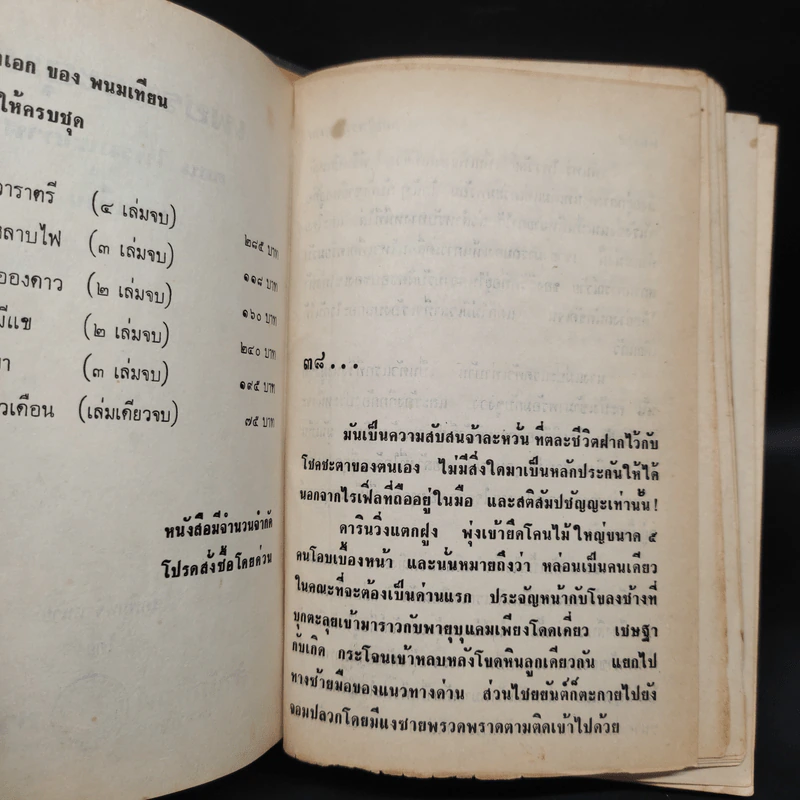 เอก ของ พนมเทียน
ให้ครบชุด
าราตรี (๔ เล่มจบ) ๒๘๕ บาท
ลาบไฟ (๓ เล่มจบ) ๑๑๘ บาท
องดาว (๒ เล่มจบ) ๑๖๐ บาท
มีแข (๒ เล่มจบ) ๒๔๐ บาท
า (๓ เล่มจบ) ๑๙๕ บาท
วเดือน (เล่มเดียวจบ) ๗๕ บาท
หนังสือมีจำนวนจำกัด
โปรดสั่งซื้อโดยด่วน
๓๘...
มันเป็นความสับสนจ้าละหวั่น ที่ตละชีวิตฝากไว้กับ
โชคชะตาของตนเอง ไม่มีสิ่งใดมาเป็นหลักประกันให้ได้
นอกจากไรเฟิ่ลที่ถืออยู่ในมือ และสติสัมปชัญญะเท่านั้น!
ดารินวิ่งแตกฝูง พุ่งเข้ายึดโคนไม้ใหญ่ขนาด ๕
คนโอบเบื้องหน้า และนั่นหมายถึงว่า หล่อนเป็นคนเดียว
ในคณะที่จะต้องเป็นด่านแรก ประจัญหน้ากับโขลงช้างที่
บุกตะลุยเข้ามาราวกับพายุบุแคมเพียงโดดเดี่ยว เชษฐา
กับเกิด กระโจนเข้าหลบหลังโขดหินลูกเดียวกัน แยกไป
ทางซ้ายมือของแนวทางด่าน ส่วนไชยยันต์ก็ตะกายไปยัง
จอมปลวกโดยมีแงซายพรวดพราดตามติดเข้าไปด้วย